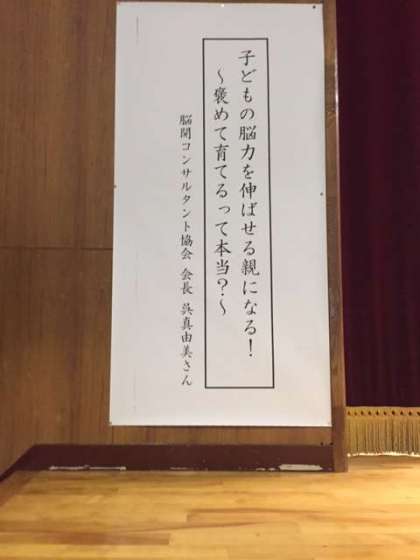 子どもの脳力を伸ばせる親になる！
～褒めて育てるって本当？～
脳開コンサルタント協会 会長 呉真由美さん